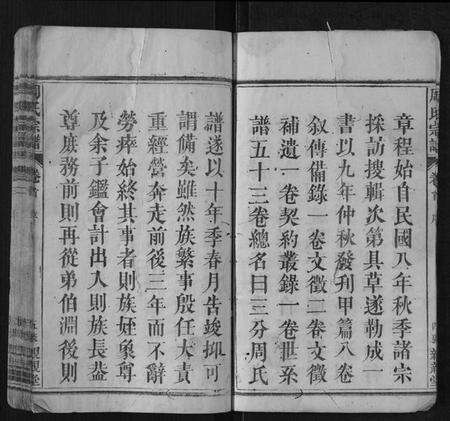 周氏宗譜
卷首
章程始自民國八年秋季諸宗
採訪搜輯次第具草遂勒成一
書以九年仲秋發刋甲篇八卷
叙傳備錄一卷文徵二卷文徵
補遺一卷契約叢錄一卷世系
譜五十三卷總名曰三分周氏
譜遂以十年季春月告竣抑可
謂備矣雖然族繁事殷任大責
重經營奔走前後三年而不辭
勞瘁始終其事者則族姪象尊
及余子鑑會計出入則族長益
尊庶務前則再從弟伯淵後則
周氏宗譜
卷首